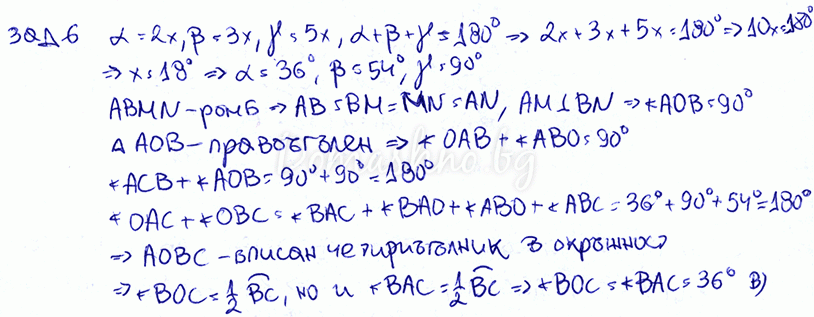 зад 6 α=2x, β=3x, γ=5x, α+β+γ=180° => 2x+3x+5x=180° => 10x=180°
=> x=18° => α=36°, β=54°, γ=90°
ABMN-ромб => AB=BM=MN=AN, AM⊥BN => ∢AOB=90°
△ AOB-правоъгълен => ∢OAB+∢ABO=90°
∢ACB+∢AOB=90°+90°=180°
∢OAC+∢OBC=∢BAC+∢BAO+∢ABO+∢ABC=36°+90°+54°=180°
=> AOBC-вписан четириъгълник в окръжност
=> ∢BOC=1/2 BC, но и ∢BAC=1/2 BC => ∢BOC=∢BAC=36° В)